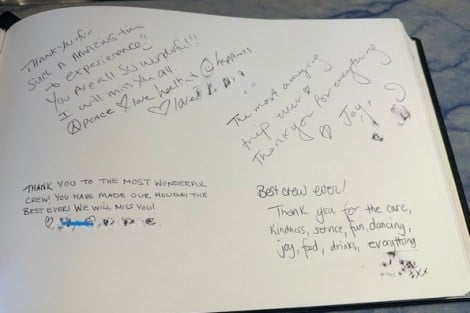 Thank you for
such a amazing time
to experience!!
You are all so wonderful!!!
I will miss you all
peace ♡ love health & happiness
love
The most amazing
trip ever ♡
Thank you for everything
♡ Joy,
THANK YOU TO THE MOST WONDERFUL
CREW! YOU HAVE MADE OUR HOLIDAY THE
BEST EVER! WE WILL MISS YOU!
♡
Best crew ever!
Thank you for the care,
kindness, service, fun, dancing,
joy, food, drinks, everything
xx